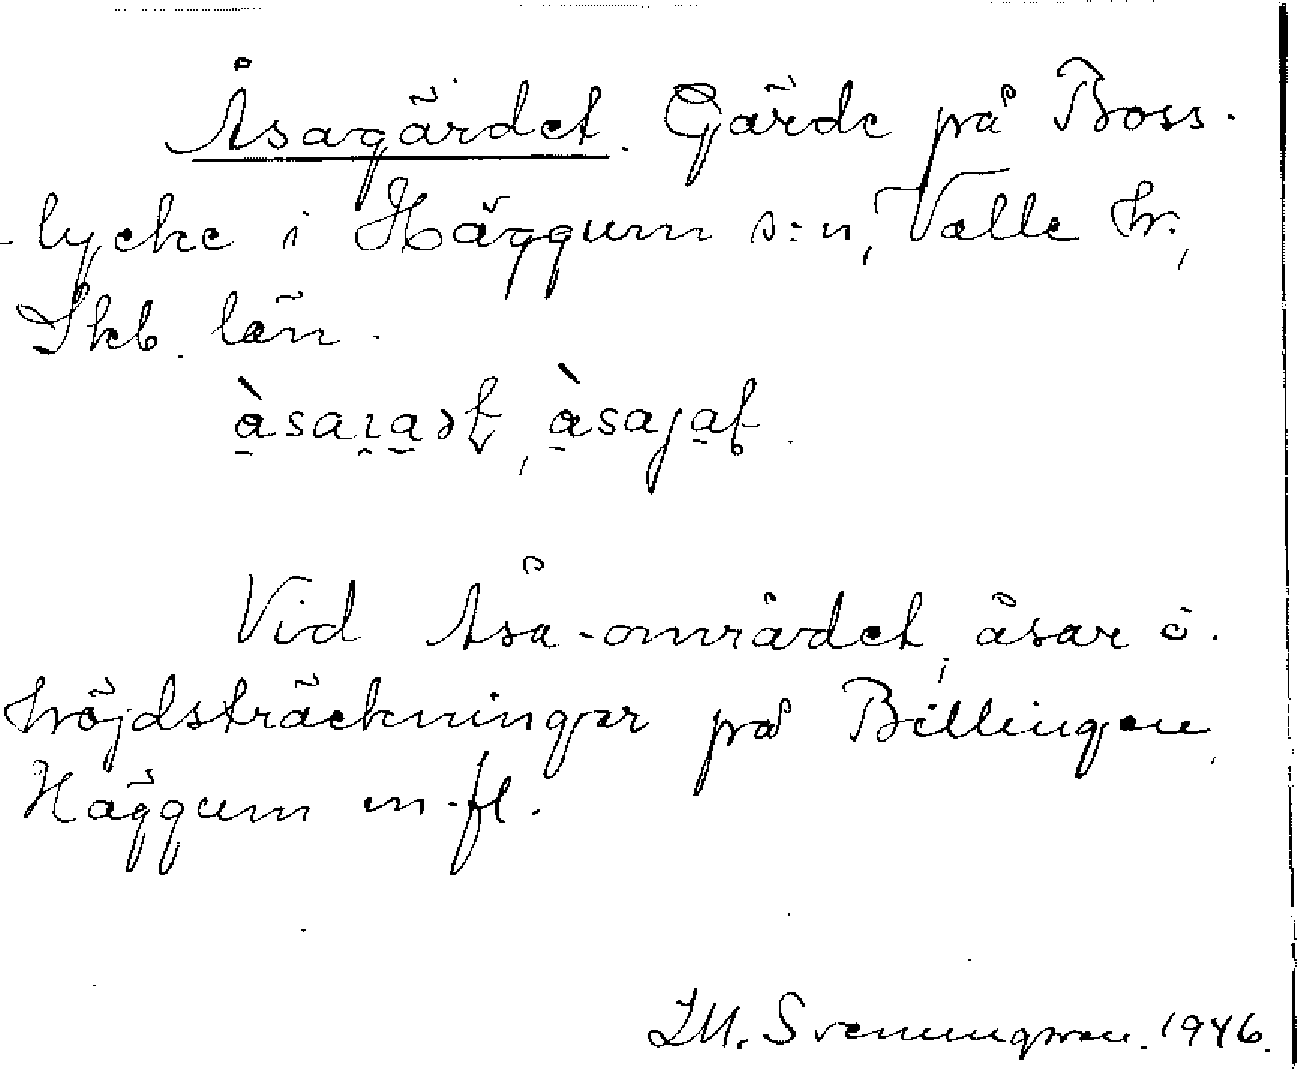 Åsagärdet. Gärde på Boss-
lycke i Häggum s:n, Valle hr,
Skb. län.
Vid Åsa-området, åsar o.
höjdsträckningar på Billingen,
Häggum m.fl.
Svenningsson. 1946.